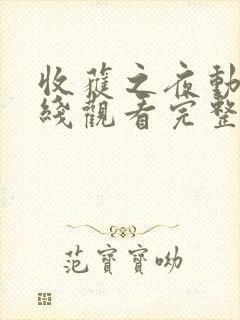 收穫之夜動
綫觀看完整
范寶寶呦